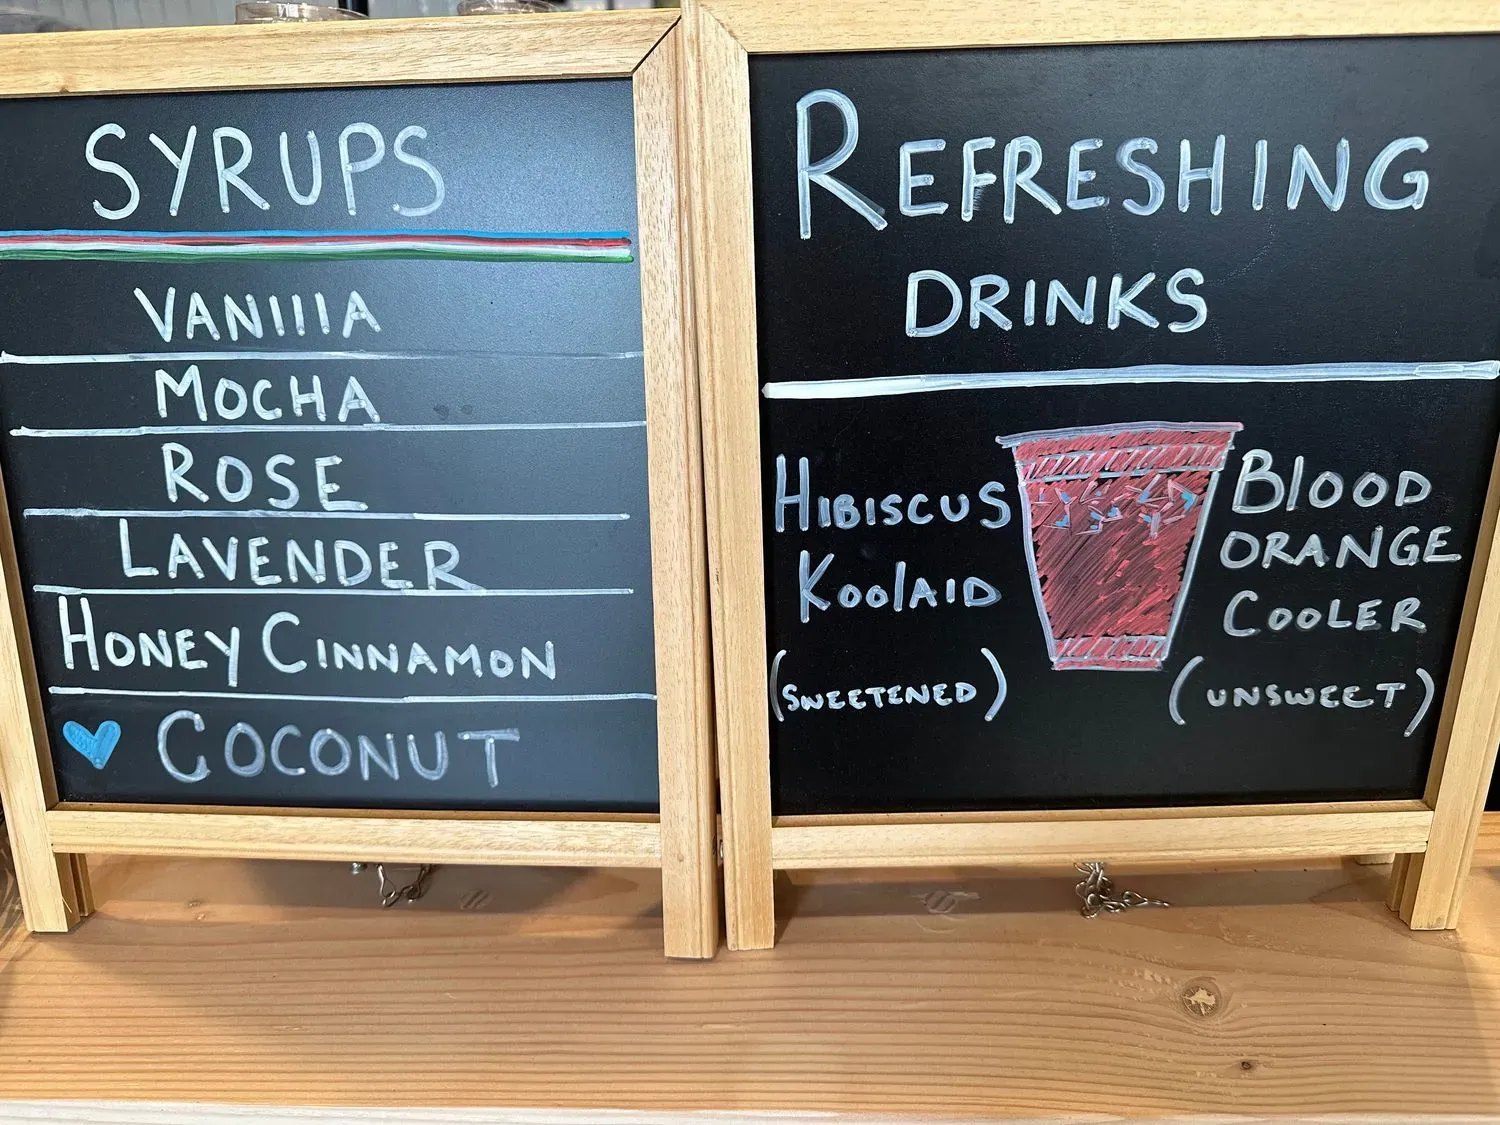 SYRUPS
VANIllA
MOCHA
ROSE
LAVENDER
HONEY CINNAMON
COCONUT
REFRESHING
DRINKS
HIBISCUS
KOOlAID
(SWEETENED)
BlOOD
ORANGE
COOLER
(UNSWEET)